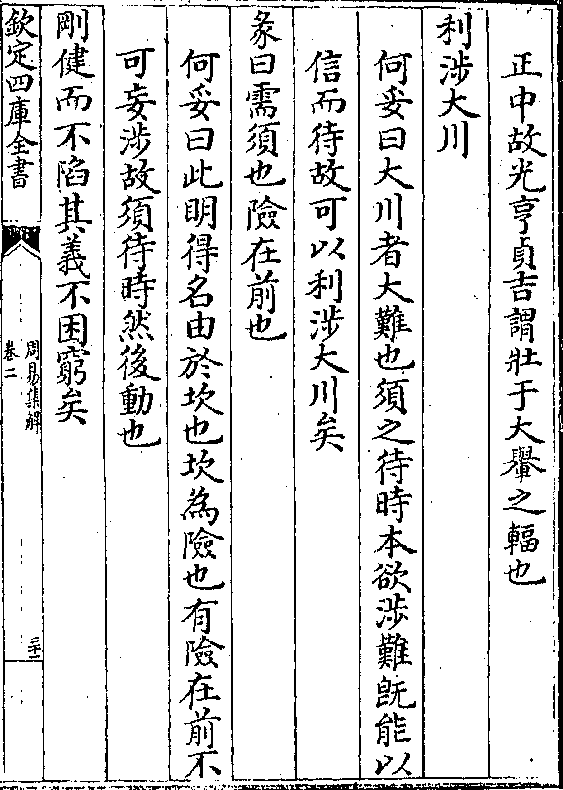 正中故光亨貞吉謂壯于大轝之輻也
利涉大川
何妥曰大川者大難也須之待時本欲涉難旣能以
信而待故可以利涉大川矣
彖曰需須也險在前也
何妥曰此明得名由於坎也坎為險也有險在前不
可妄涉故須待時然後動也
剛健而不陷其義不困窮矣
欽定四庫全書
周易集解
卷二